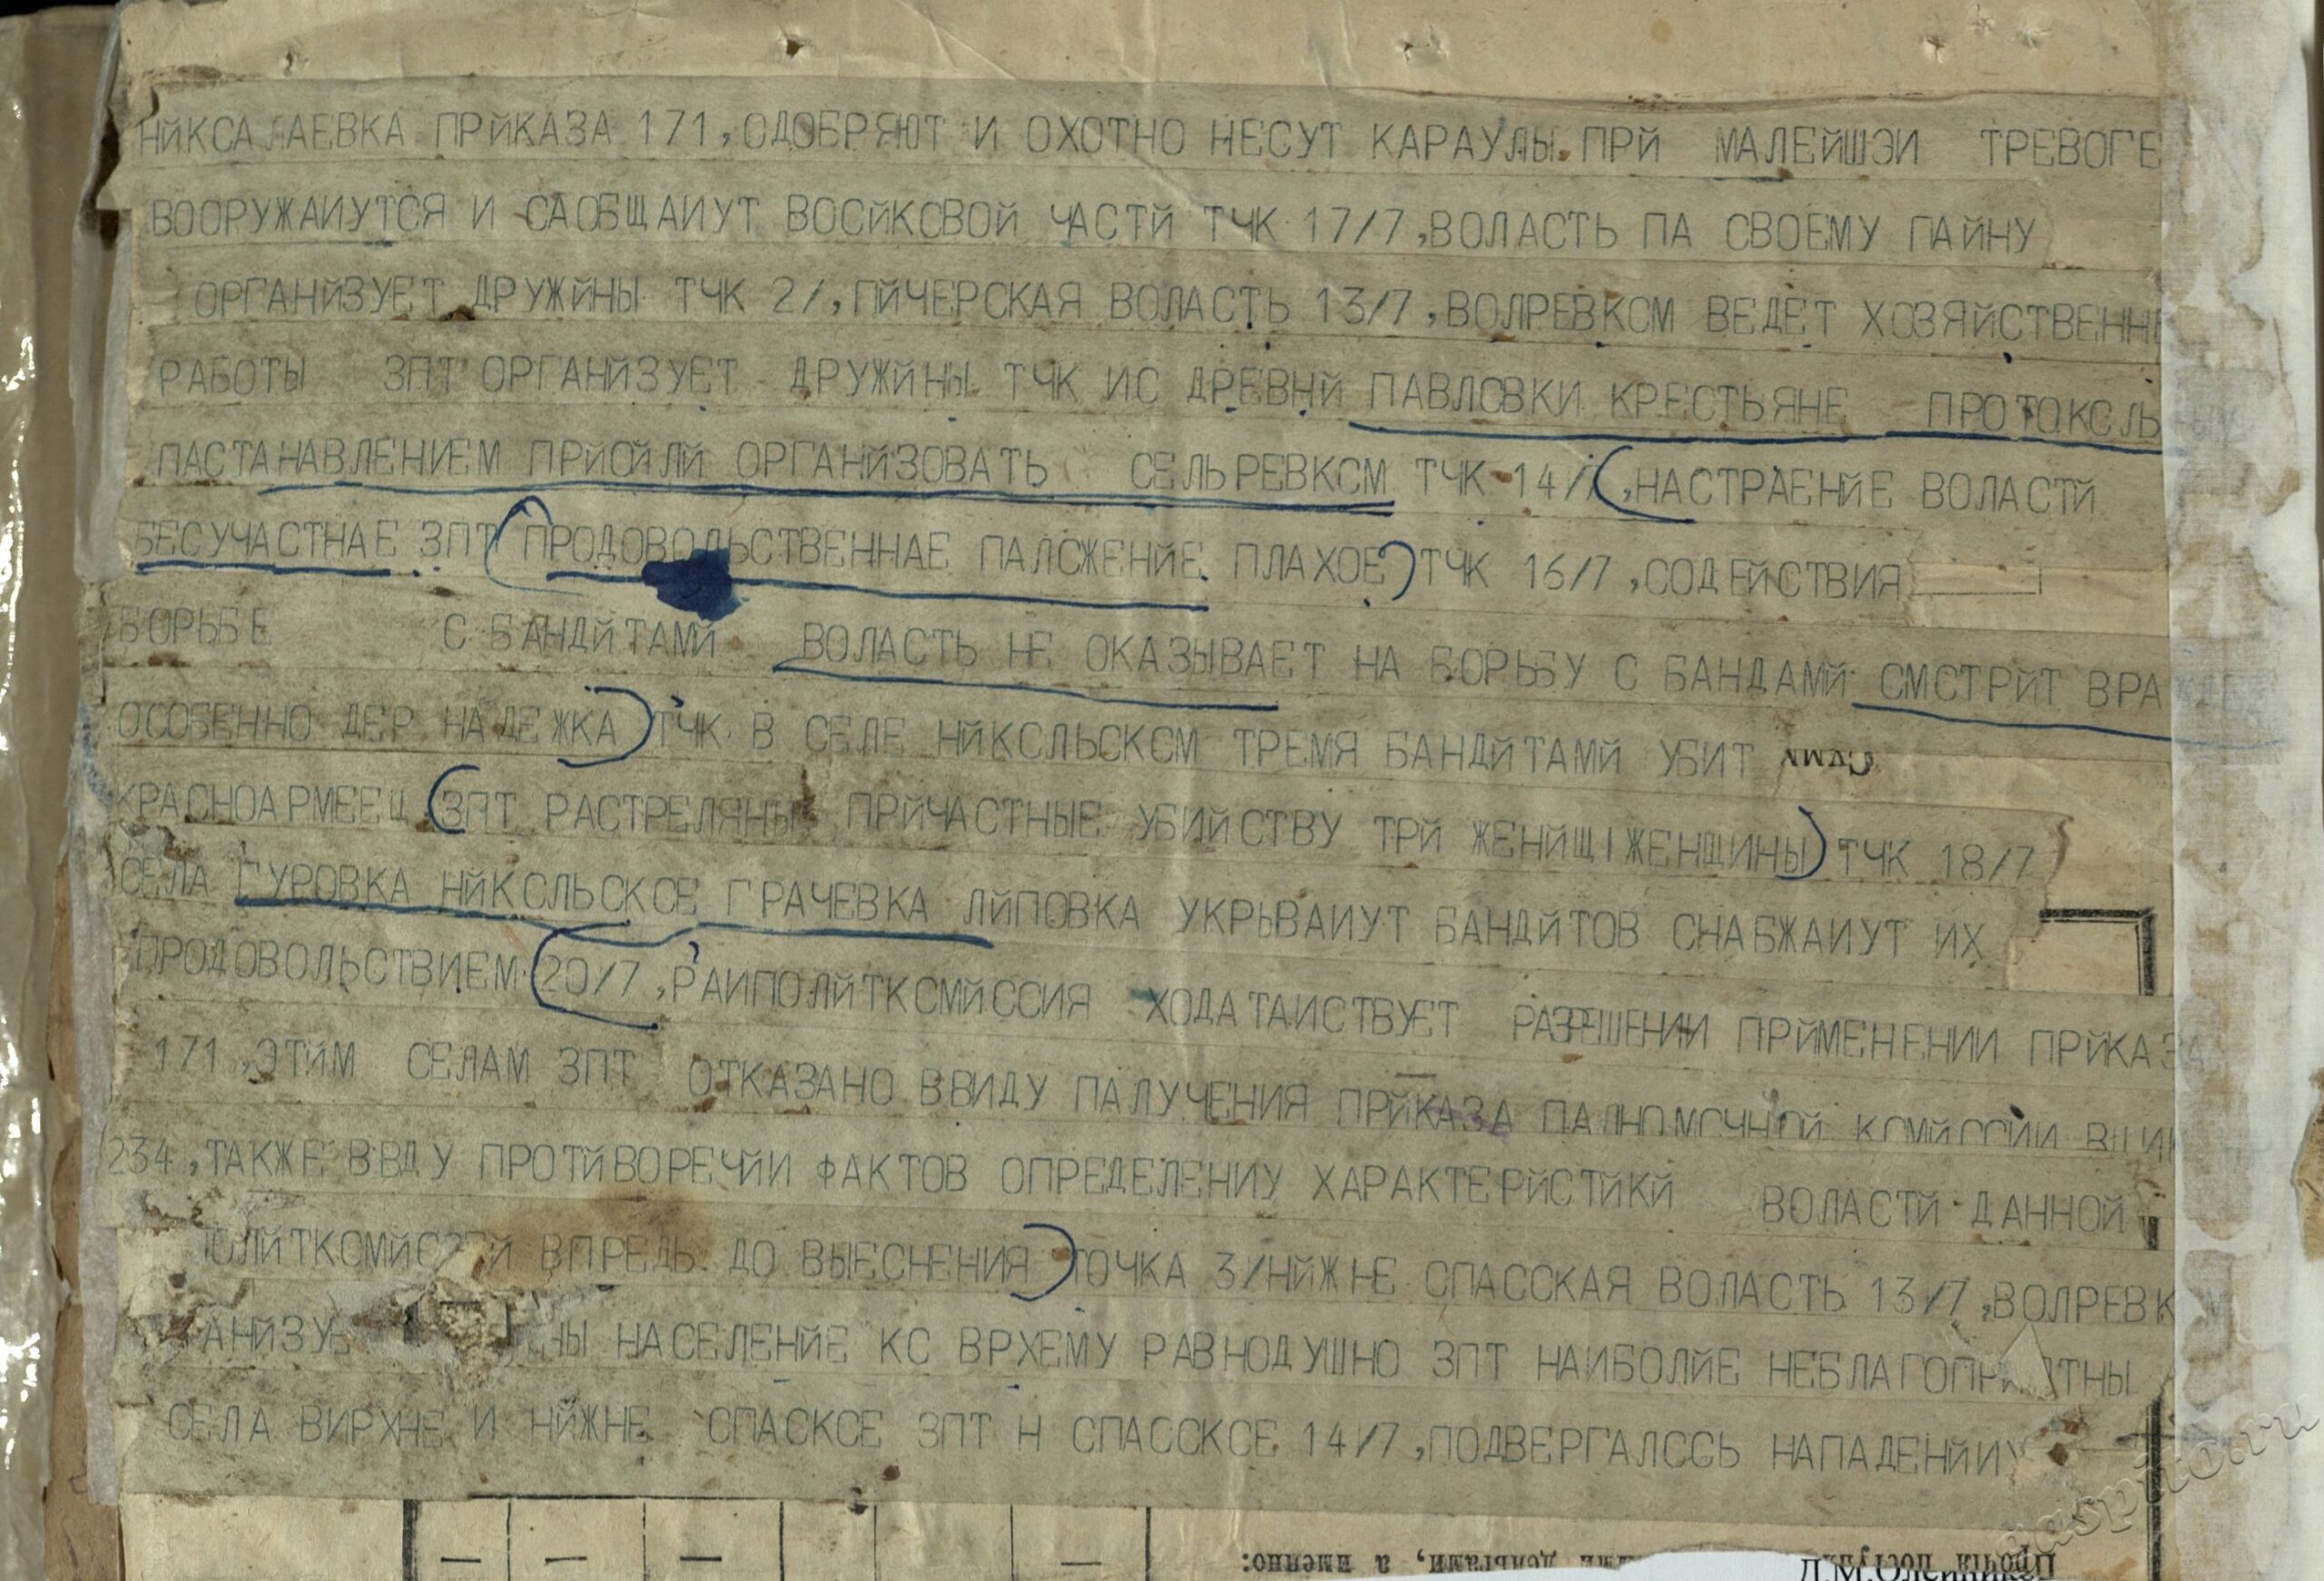 НЙКСАЛАЕВКА ПРЙКАЗА 171,ОДОБРЯЮТ И ОХОТНО НЕСУТ КАРАУЛЫ.ПРЙ МАЛЕЙШЭИ ТРЕВОГЕ
ВООРУЖАИУТСЯ И САОБЩАИУТ ВОСЙКСВОЙ ЧАСТЙ ТЧК 17/7,ВОЛАСТЬ ПА СВОЕМУ ПАЙНУ
ОРГАНЙЗУЕТ ДРУЖЙНЫ ТЧК 2/,ПЙЧЕРСКАЯ ВОЛАСТЬ 13/7,ВОЛРЕВКСМ ВЕДЕТ ХСЗЯЙСТВЕНН
РАБОТЫ ЗПТ ОРГАНЙЗУЕТ ДРУЖЙНЫ ТЧК ИС ДРЕВНЙ ПАВЛСВКИ КРЕСТЬЯНЕ ПРОТОКСЛЬ
ПАСТАНАВЛЕНИЕМ ПРЙСЙЛЙ ОРГАНЙЗОВАТЬ СЕЛЬРЕВКСМ ТЧК 14/7,НАСТРАЕНЙЕ ВОЛАСТЙ
БЕСУЧАСТНАЕ ЗПТ ПРОДОВОЛЬСТВЕННАЕ ПАЛСЖЕНЙЕ ПЛАХОЕ ТЧК 16/7,СОДЕЙСТВИЯ
БОРЬБЕ С БАНДЙТАМЙ ВОЛАСТЬ НЕ ОКАЗЫВАЕТ НА БОРЬБУ С БАНДАМЙ СМСТРЙТ ВРА
ОСОБЕННО ДЕР НАДЕЖКА ТЧК В СЕЛЕ НЙКСЛЬСКСМ ТРЕМЯ БАНДЙТАМЙ УБИТ
КРАСНОАРМЕЕЦ ЗПТ РАСТРЕЛЯНЫ ПРЙЧАСТНЫЕ УБИЙСТВУ ТРЙ ЖЕНЙЩ ЖЕНЩИНЫ ТЧК 18/7
СЕЛА ГУРОВКА НЙКСЛЬСКСЕ ГРАЧЕВКА ЛЙПОВКА УКРЬВАИУТ БАНДЙТОВ СНАБЖАИУТ ИХ
ПРОДОВОЛЬСТВИЕМ 20/7,РАИПОЛЙТКСМЙССИЯ ХОДАТАИСТВУЕТ РАЗРЕШЕНИИ ПРЙМЕНЕНИИ ПРЙКАЗА
171,ЭТЙМ СЕЛАМ ЗПТ ОТКАЗАНО ВВИДУ ПАЛУЧЕНИЯ ПРЙКАЗА ПАЛНОМСЧНОЙ КСМЙССЙИ ВЦИК
234,ТАКЖЕ ВВДУ ПРОТЙВОРЕЧЙИ ФАКТОВ ОПРЕДЕЛЕНИУ ХАРАКТЕРЙСТЙКЙ ВОЛАСТЙ ДАННОЙ
ВПРЕДЬ ДО ВЫЕСНЕНИЯ ТОЧКА 3/НЙЖНЕ СПАССКАЯ ВОЛАСТЬ 13/7,ВОЛРЕВК
АНЙЗУЕ НЫ НАСЕЛЕНЙЕ КС ВРХЕМУ РАВНОДУШНО ЗПТ НАИБОЛЙЕ
СЕЛА ВИРХНЕ И НЙЖНЕ СПАСКСЕ ЗПТ Н СПАССКСЕ 14/7,ПОДВЕРГАЛССЬ НАПАДЕНЙИУ
деньгами, а именно: